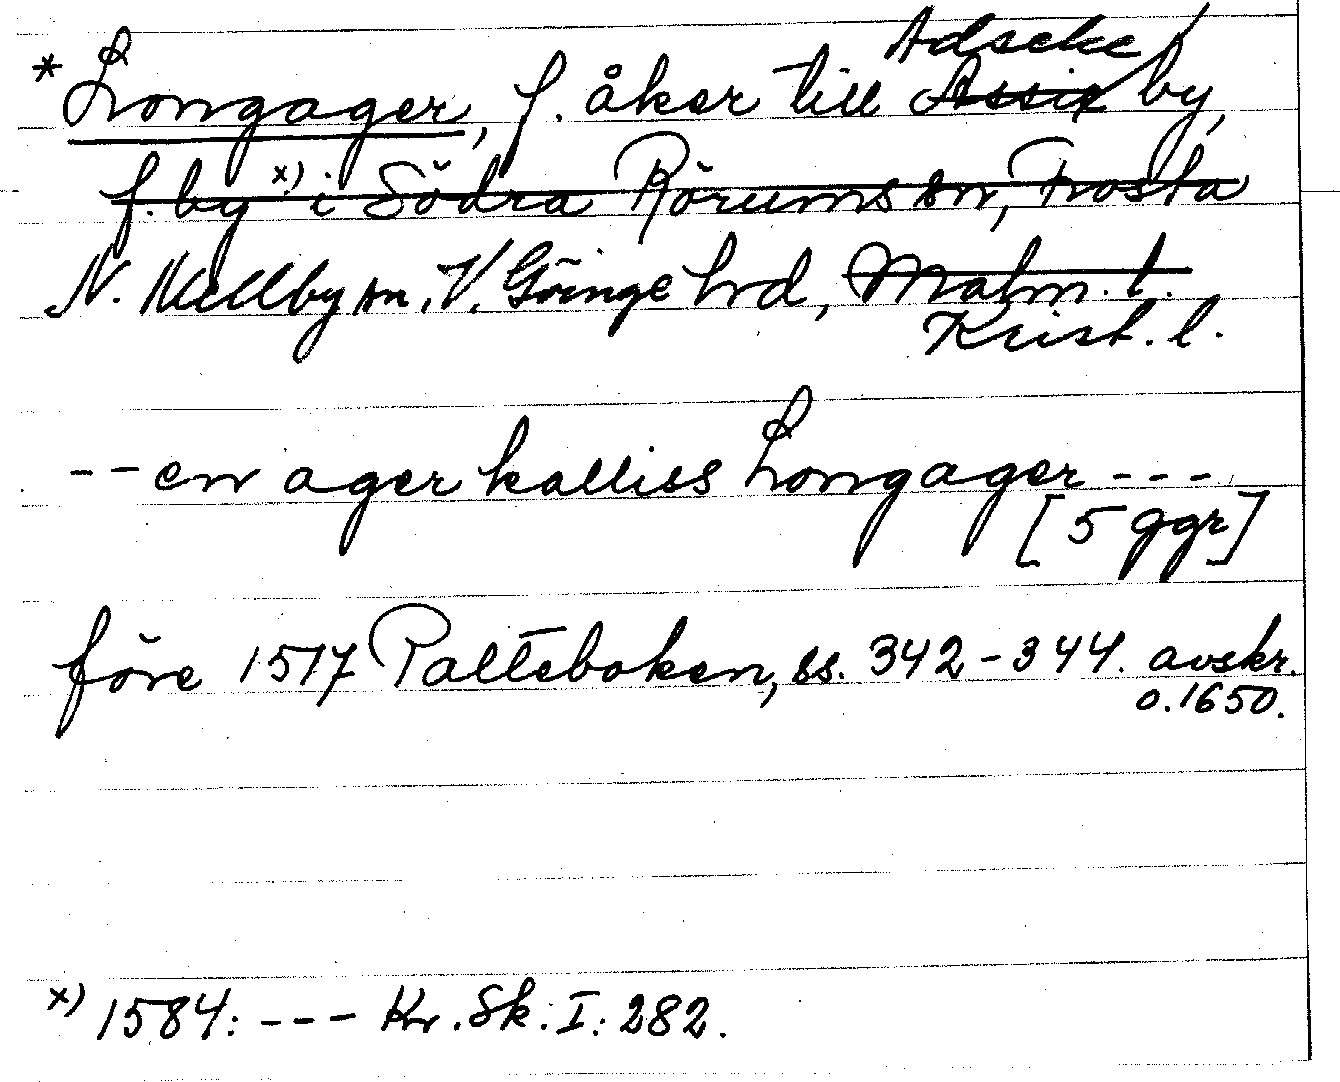 Adseke
* Longager, f. åker till Assig by,
f. by x) i Södra Rörums sn, Frosta
N. Mellby sn. V. Göinge hrd, Malm. l.
Krist. l.
-- en ager kalliss Longager ---
[5 ggr]
före 1517 Palteboken, ss. 342-344. avskr.
o. 1650.
x) 1584: --- Kr. Sk. I: 282.